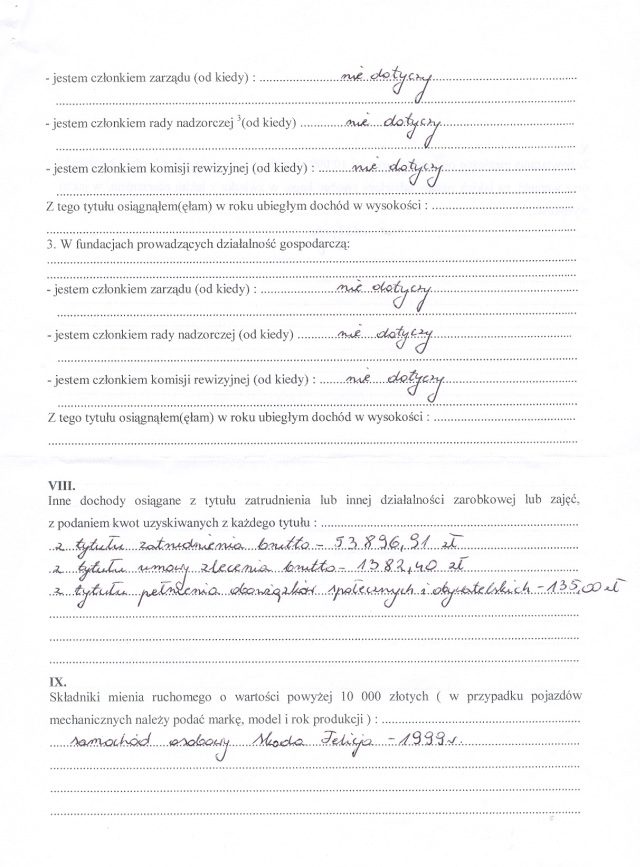 - jestem członkiem zarządu (od kiedy) : nie dotyczy
- jestem członkiem rady nadzorczej ³(od kiedy) nie dotyczy
- jestem członkiem komisji rewizyjnej (od kiedy) : nie dotyczy
Z tego tytułu osiągnąłem(ęłam) w roku ubiegłym dochód w wysokości :
3. W fundacjach prowadzących działalność gospodarczą:
- jestem członkiem zarządu (od kiedy) : nie dotyczy
- jestem członkiem rady nadzorczej (od kiedy) nie dotyczy
- jestem członkiem komisji rewizyjnej (od kiedy) : nie dotyczy
Z tego tytułu osiągnąłem(ęłam) w roku ubiegłym dochód w wysokości :
VIII.
Inne dochody osiągane z tytułu zatrudnienia lub innej działalności zarobkowej lub zajęć,
z podaniem kwot uzyskiwanych z każdego tytułu :
z tytułu zatrudnienia brutto - 53 896,91 zł
z tytułu umowy zlecenia brutto - 1382,40 zł
z tytułu pełnienia obowiązków społecznych i obywatelskich - 135,00 zł
IX.
Składniki mienia ruchomego o wartości powyżej 10 000 złotych ( w przypadku pojazdów
mechanicznych należy podać markę, model i rok produkcji ) :
samochód osobowy Skoda Felicja - 1999 r.